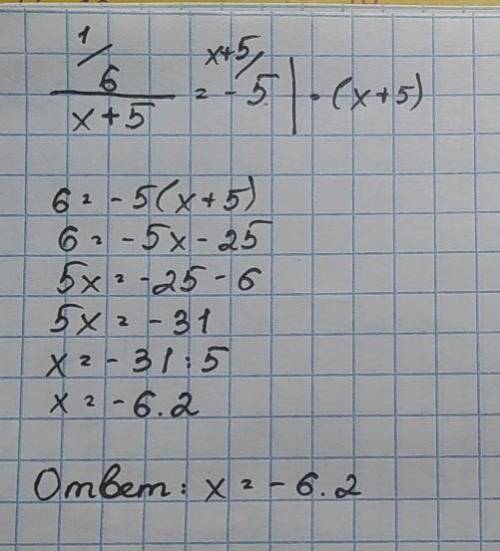 1/6/(x+5) = x+5/-5 | · (x+5)
6 = -5(x+5)
6 = -5x - 25
5x = -25 - 6
5x = -31
x = -31 : 5
x = -6.2
Ответ: x = -6.2